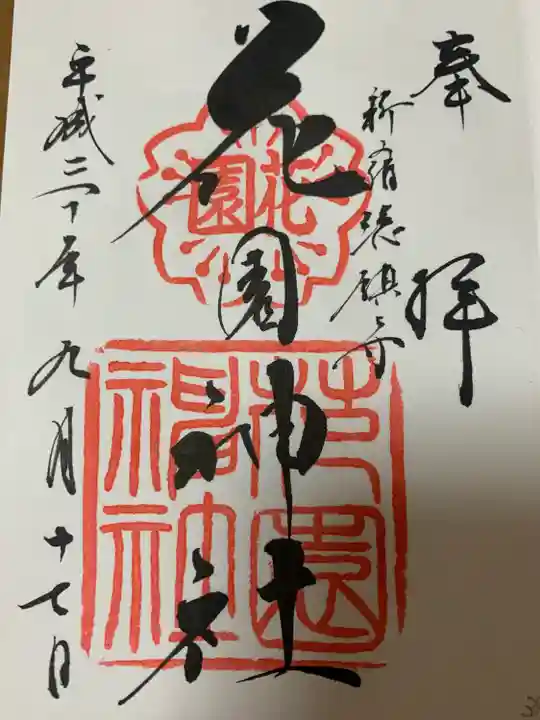 奉拝
新宿總鎮守
花園神社
花園
花園神社
平成三十年九月十七日